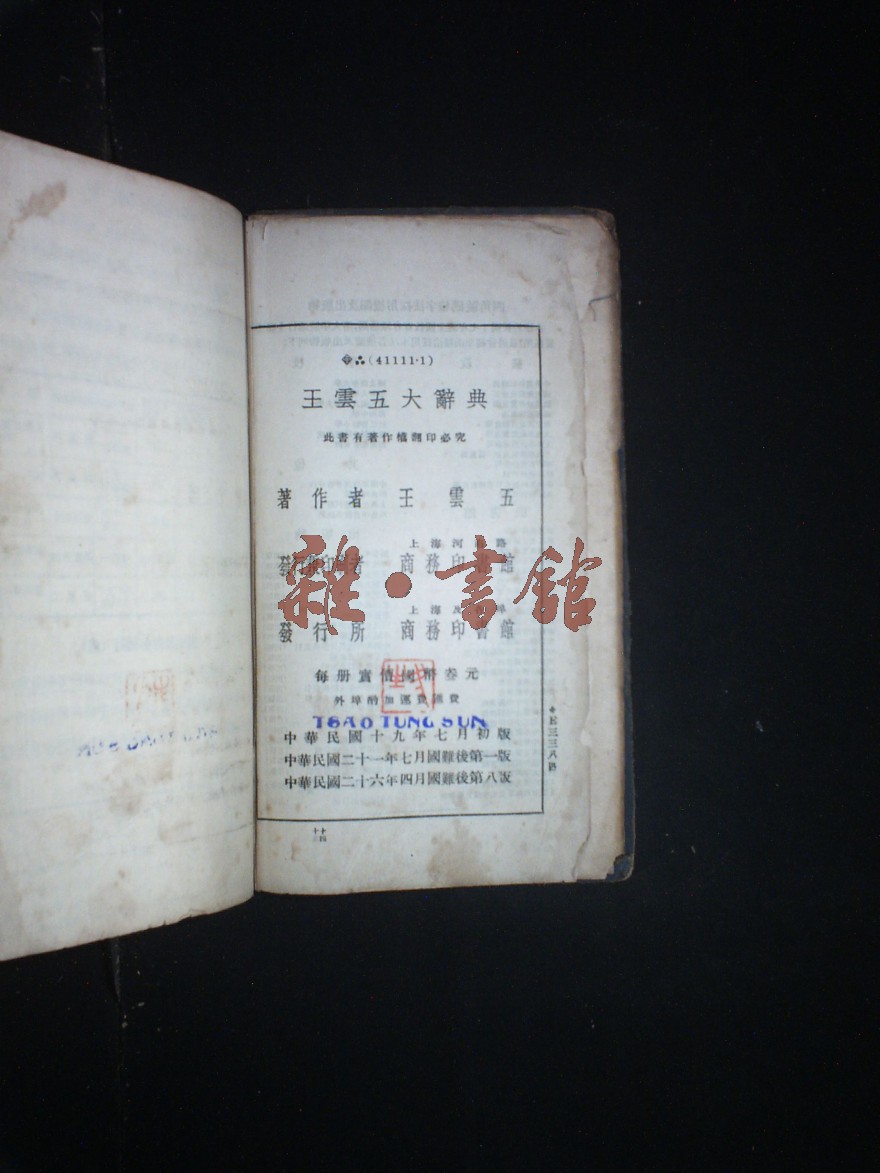 (41111·1)
王雲五大辭典
此書有著作權翻印必究
著作者 王雲五
上海河南路
發行兼印刷者 商務印書館
上海及各埠
發行所 商務印書館
雜·書館
每册實價國幣叁元
外埠酌加運費匯費
TSAO TUNG SUN
中華民國十九年七月初版
中華民國二十一年七月國難後第一版
中華民國二十六年四月國難後第八版